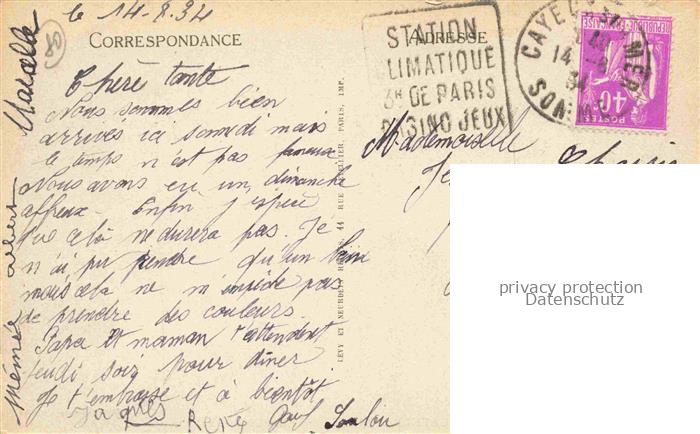 le 14-8.34
80
CORRESPONDANCE
ADRESSE
STATION
CLIMATIQUE
3H DE PARIS
CASINO JEUX
CAYEUX S/ MER
14
34
SOMME
POSTES
40
RÉPUBLIQUE FRANÇAISE
Chère tante
Nous sommes bien
arrivés ici samedi mais
le temps n'est pas fameux
Nous avons eu un dimanche
affreux. Enfin j'espère
que cela ne durera pas. Je
n'ai pu prendre qu'un bain
mais cela ne m'empêche pas
de prendre des couleurs.
Papa et maman t'attendent
jeudi soir pour dîner.
Je t'embrasse et à bientôt
Jaques René
Loulou
Mémée Albert Marcelle
LEVY ET NEURDEIN RÉUNIS, 44 RUE LETELLIER, PARIS, IMP.
Mademoiselle
privacy protection
Datenschutz